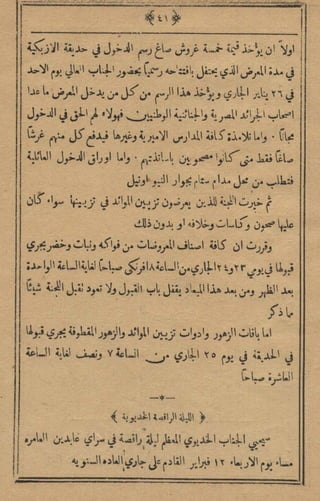 ﴿ ٤١ ﴾
اولاً ان يؤخذ قيمة خمسة غروش صاغ رسم الدخول في حديقة الازبكية
في مدة المعرض الذي يحتفل بافتتاحه رسميًا بحضور الجناب العالي يوم الاحد
في ٢٦ يناير الجاري ويؤخذ هذا الرسم من كل من يدخل المعرض ما عدا
اصحاب الجرائد المصرية والجنائنية الوطنيين فهولاء لهم الحق في الدخول
مجانًا ٠ واما تلامذة كافة المدارس الاميرية وغيرها فيدفع كل منهم غرشًا
صاغًا فقط متى كانوا مصحوبين باساتذتهم ٠ واما اوراق الدخول العائلية
فتطلب من محل مدام ستام بجوار النيو اوتيل
ثم خيرت اللجنة للذين يعرضون تزيين الموائد في تزيينها سواء كان
عليها صحون وكاسات وخلافه او بدون ذلك
وقررت ان كافة اصناف المعروضات من فواكه ونبات وخضر يجري
قبولها في يومي ٢٣ و٢٤ الجاري من الساعة ٨ افرنكي صباحًا لغاية الساعة الواحدة
بعد الظهر ومن بعد هذا الميعاد يقفل باب القبول ولا تعود تقبل اللجنة شيئًا
مما ذكر
اما باقات الزهور وادوات تزيين الموائد والزهور المقطوفة يجري قبولها
في الحديقة في يوم ٢٥ الجاري من الساعة ٧ ونصف لغاية الساعة
العاشرة صباحًا
﴿ الليلة الراقصة الخديوية ﴾
سيحيي الجناب الخديوي المعظم ليلة راقصة في سراي عابدين العامره
مساء يوم الاربعاء ١٢ فبراير القادم على جاري العاده السنويه